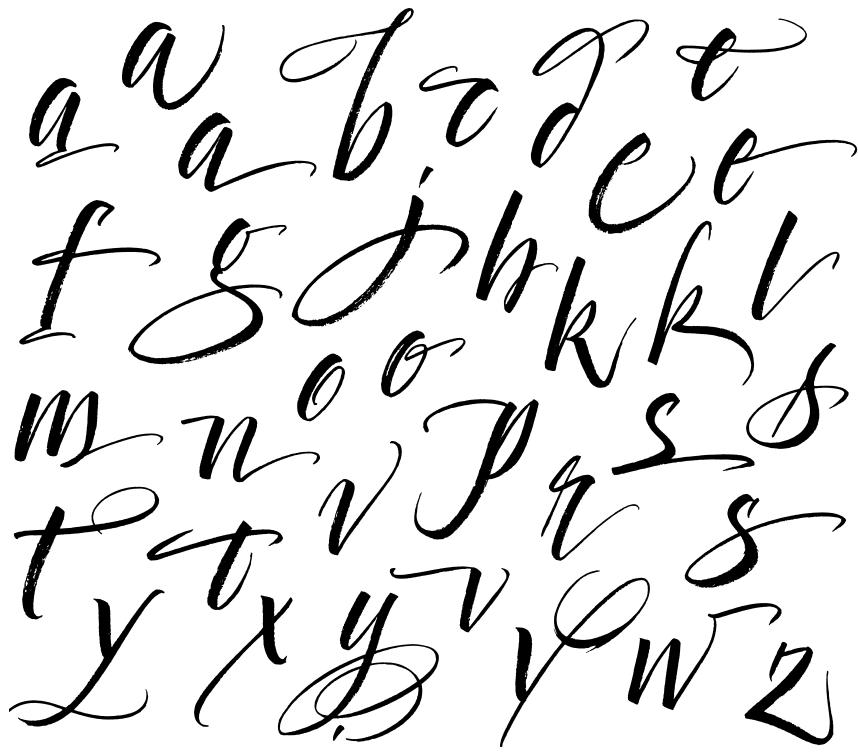 a a a b c d e e e
f g j h k k l
m n o o p r s s
t t v s
y x y v v w z